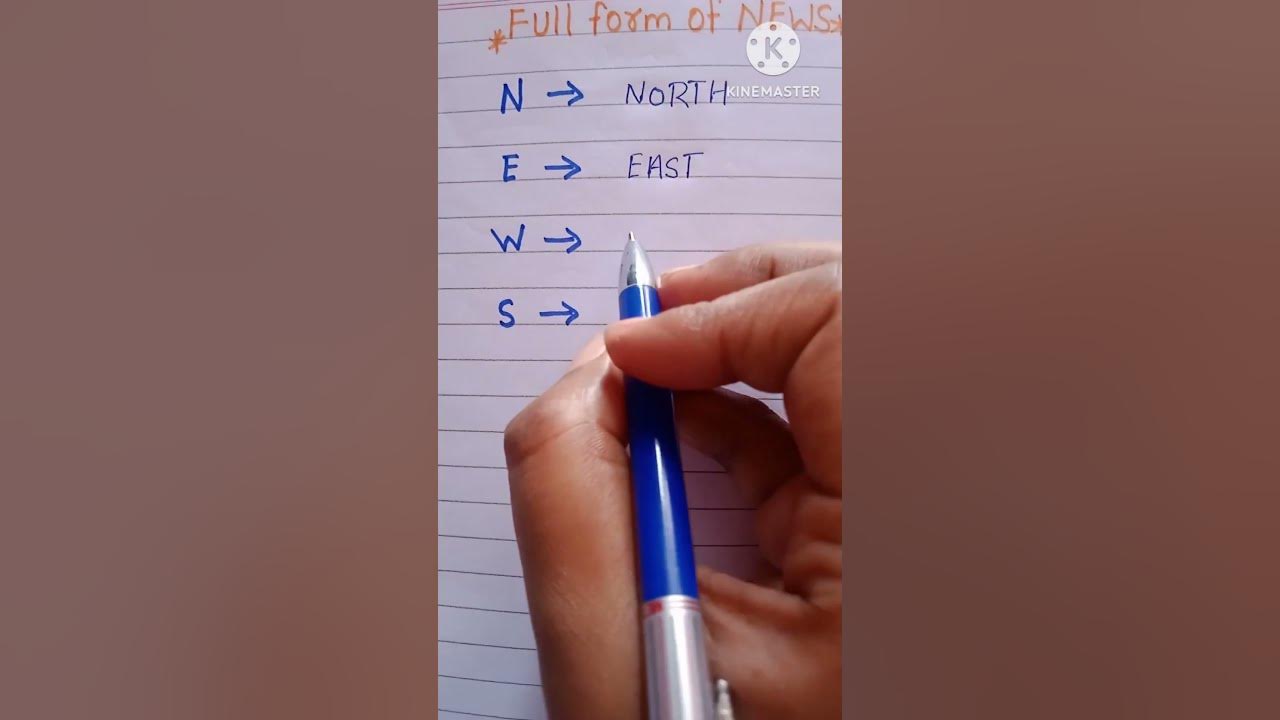 *Full form of NEWS*
K
KINEMASTER
N → NORTH
E → EAST
W →
S →